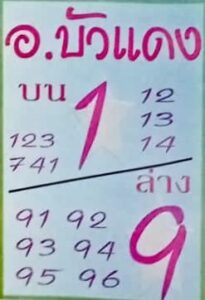 อ.บัวแดง
บน 1 12
13
123 14
741
ล่าง
91 92 9
93 94
95 96